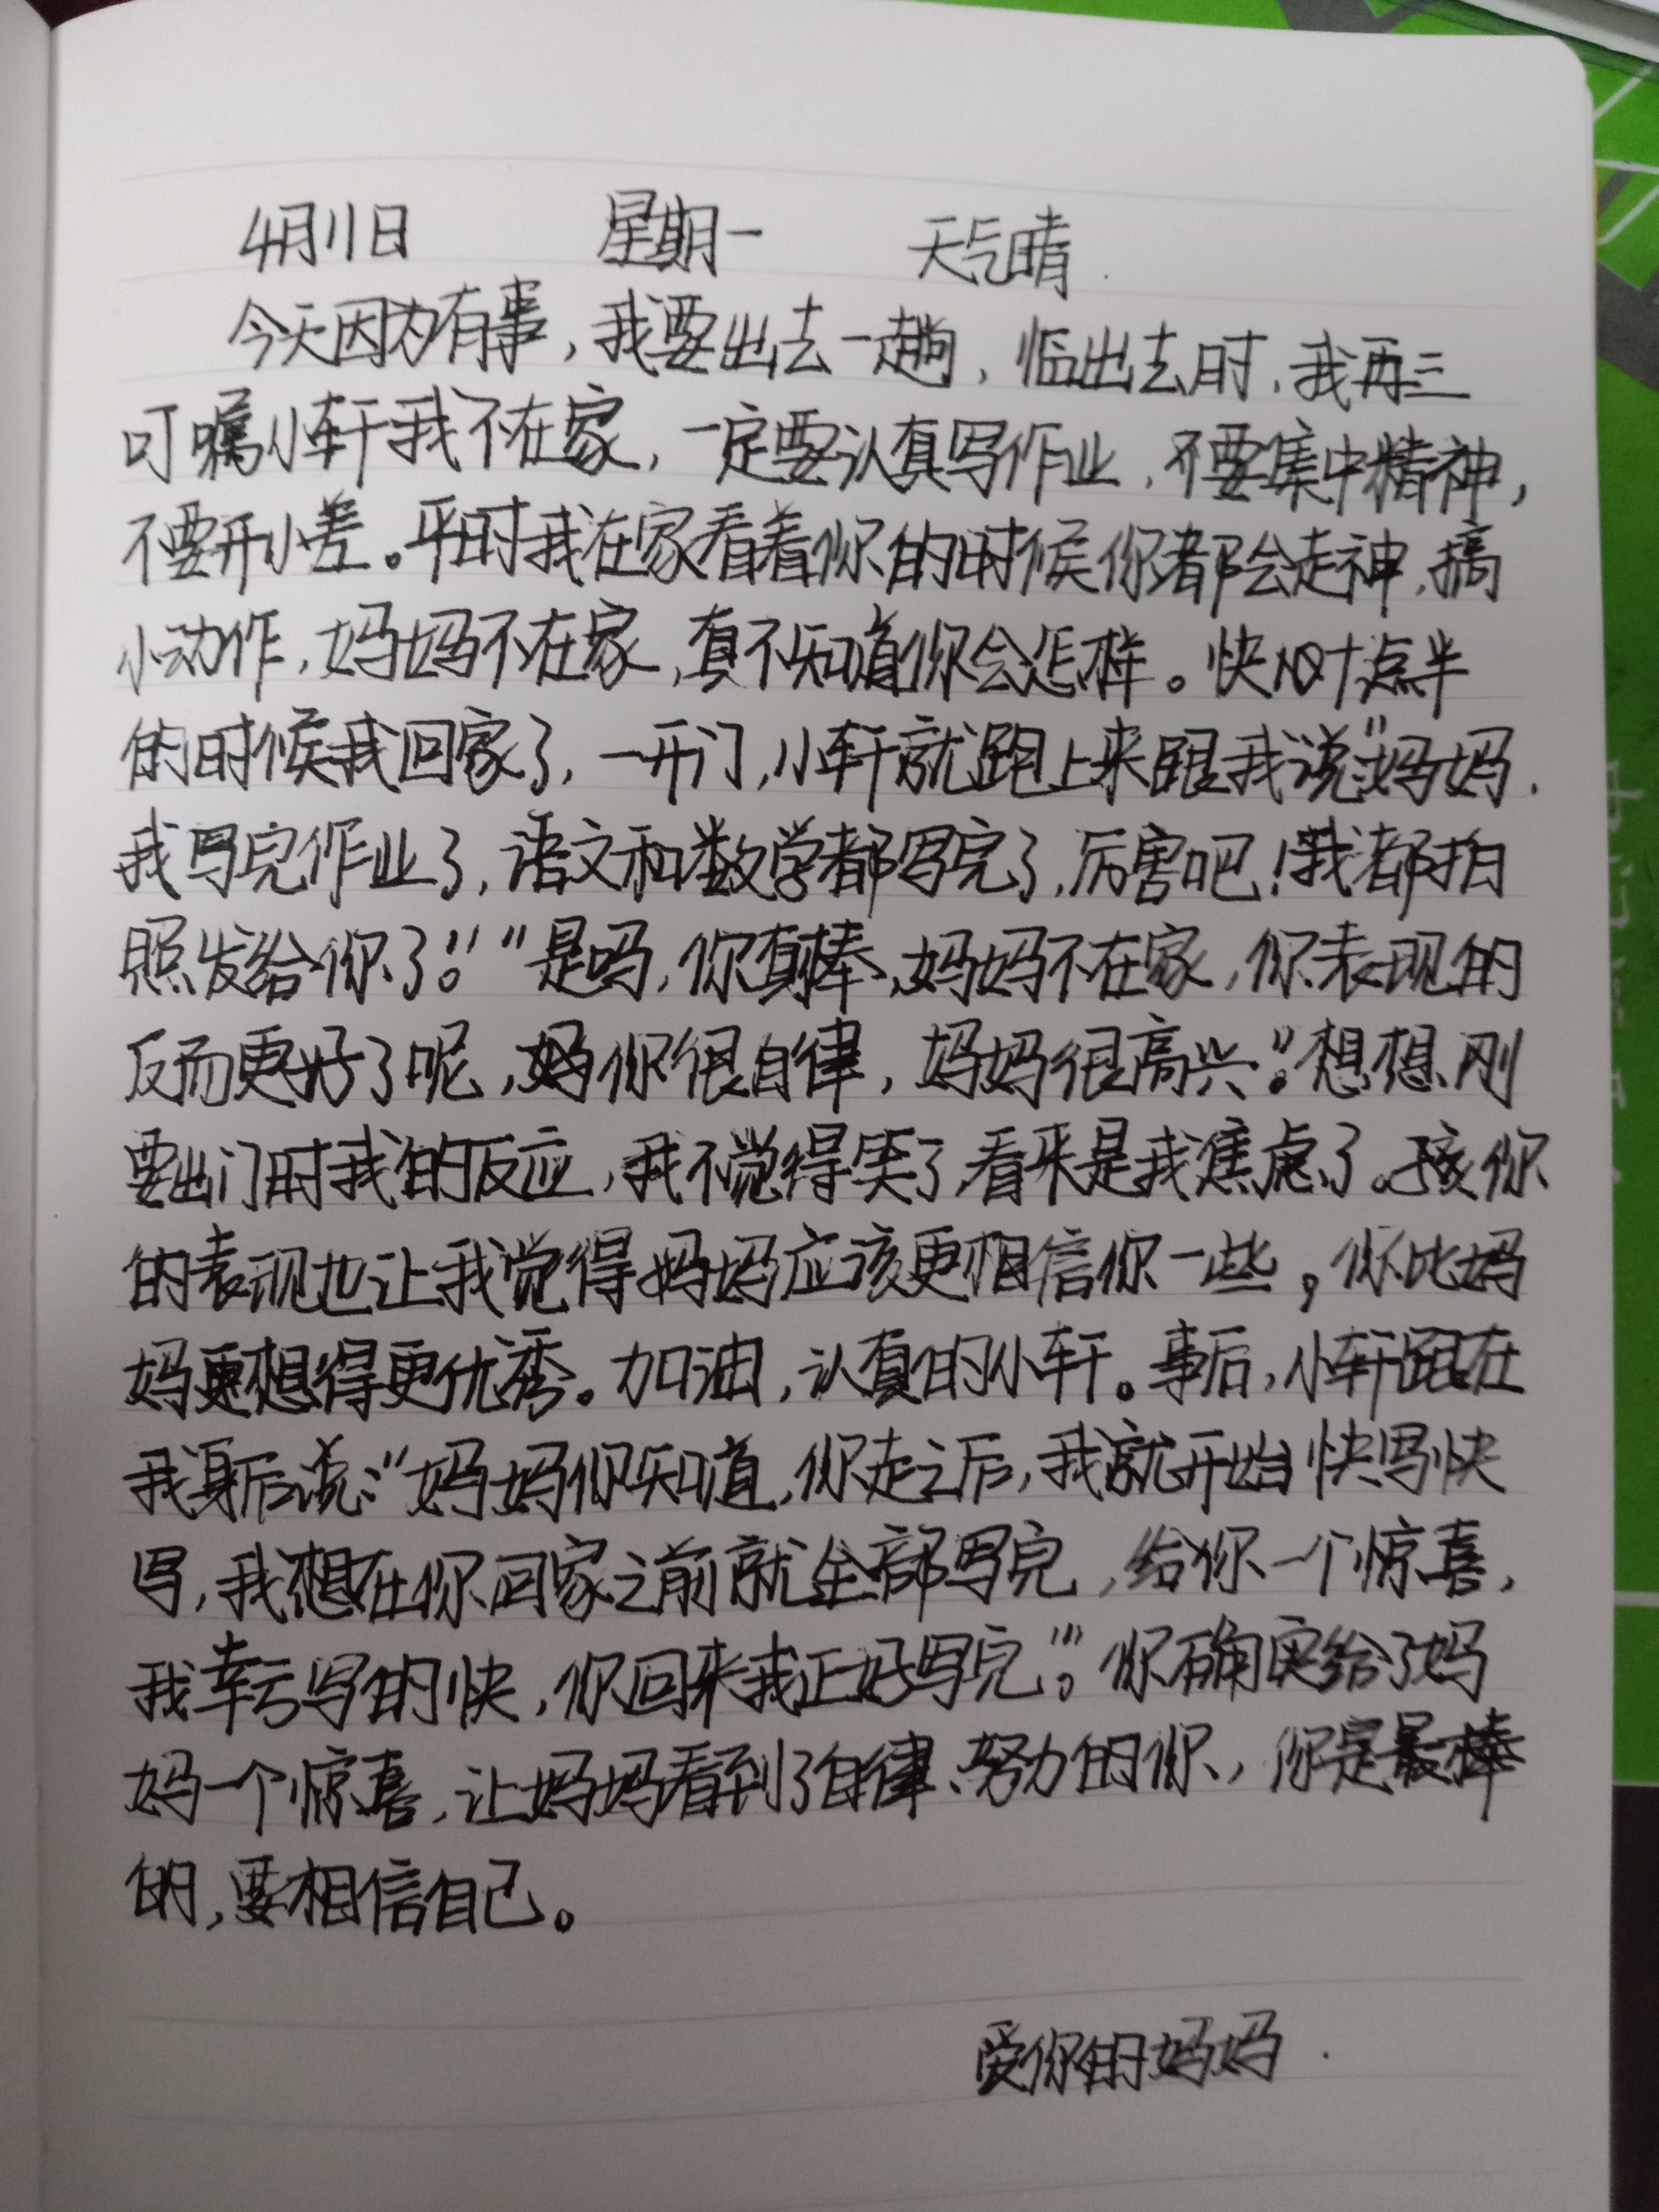 4月11日 星期一 天气晴.
今天因为有事，我要出去一趟，临出去时，我再三
叮嘱小轩我不在家，一定要认真写作业，不要集中精神，
不要开小差。平时我在家看着你的时候你都会走神，搞
小动作，妈妈不在家，真不知道你会怎样。快十点半
的时候我回家了，一开门，小轩就跑上来跟我说“妈妈，
我写完作业了，语文和数学都写完了，厉害吧！我都拍
照发给你了。”“是吗，你真棒，妈妈不在家，你表现的
反而更好了呢，你很自律，妈妈很高兴。”想想刚
要出门时我的反应，我不觉得笑了，看来是我焦虑了。孩你
的表现也让我觉得妈妈应该更相信你一些，你比妈
妈更想得更优秀。加油，认真的小轩。事后，小轩跟在
我身后说：“妈妈你知道，你走之后，我就开始快写快
写，我想在你回家之前就全部写完，给你一个惊喜，
我幸亏写的快，你回来我正好写完！”。你确实给了妈
妈一个惊喜，让妈妈看到了自律、努力的你，你是最棒
的，要相信自己。
爱你的妈妈.